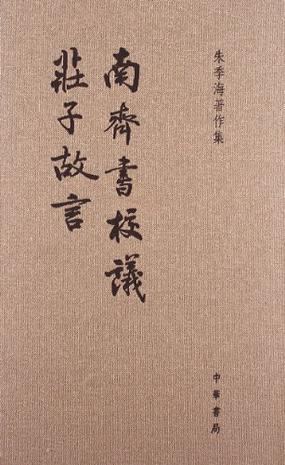 朱季海著作集
南齊書校議
莊子故言
中華書局